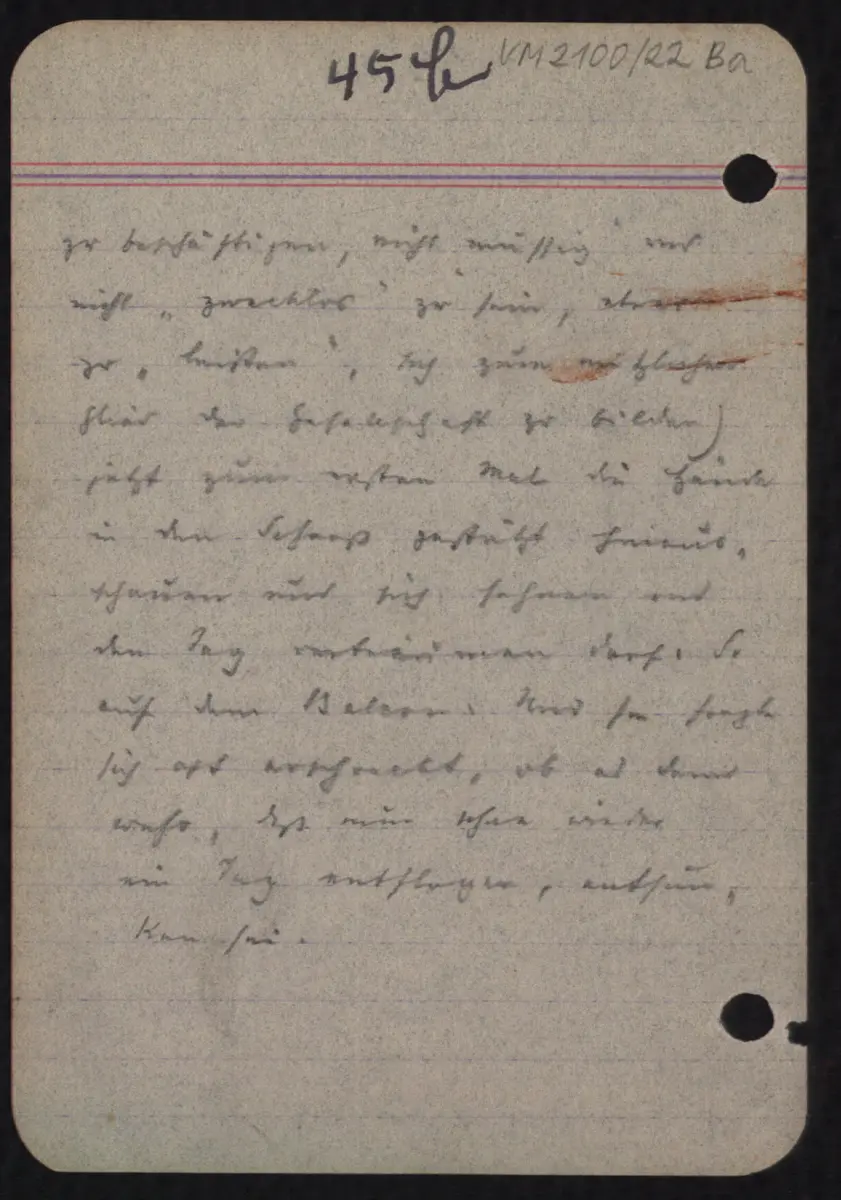 45b VM2100/22 Ba
zu beschäftigen, nicht müssig" und
nicht „zwecklos" zu sein, etwas
zu „leisten", sich zum nützlichen
Glied der Gesellschaft zu bilden)
jetzt zum ersten Mal die Hände
in den Schooß gestützt hinaus-
schauen und sich sehnen und
den Tag verträumen darf. So
auf dem Balcon. Und sie fragte
sich oft erschreckt, ob es denn
wahr, daß nun schon wieder
ein Tag entflogen, entsun-
ken sei.